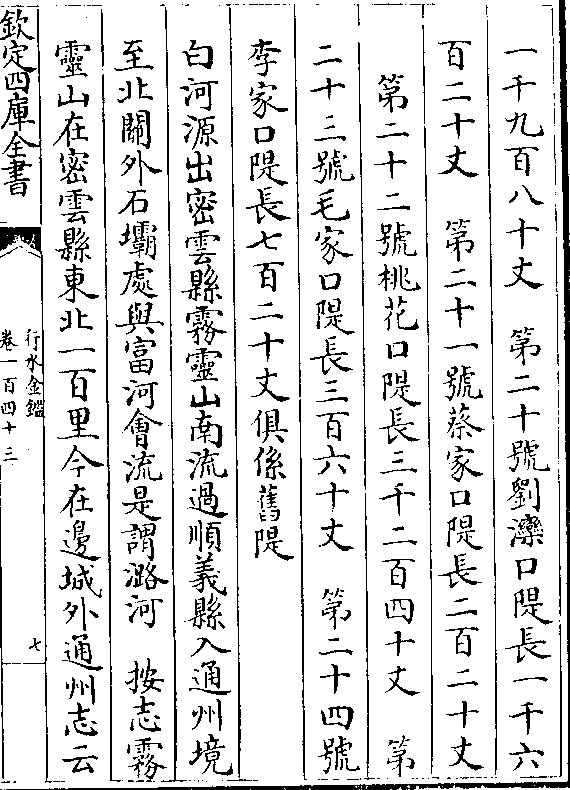 一千九百八十丈　第二十號劉灤口隄長一千六
百二十丈　第二十一號蔡家口隄長二百二十丈
　第二十二號桃花口隄長三千二百四十丈　第
二十三號毛家口隄長三百六十丈　第二十四號
李家口隄長七百二十丈俱係舊隄
白河源出密雲縣霧靈山南流過順義縣入通州境
至北關外石壩處與富河會流是謂潞河　按志霧
靈山在密雲縣東北一百里今在邊城外通州志云
欽定四庫全書
行水金鑑
卷一百四十三
七